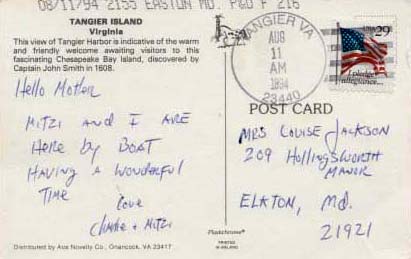 08/11/94 2155 EASTON MD. P&D F 216
TANGIER ISLAND
Virginia
This view of Tangier Harbor is indicative of the warm
and friendly welcome awaiting visitors to this
fascinating Chesapeake Bay Island, discovered by
Captain John Smith in 1608.
Hello Mother
Mitzi and I are
Here by Boat
Having a wonderful
Time
Love
Charlie + Mitzi
Distributed by Ace Novelty Co., Onancock, VA 23417
Plastichrome
PRINTED
IN IRELAND
TANGIER VA
AUG
11
AM
1994
23440
USA 29
I pledge
allegiance...
POST CARD
Mrs Louise Jackson
209 Hollingsworth
Manor
Elkton, Md.
21921